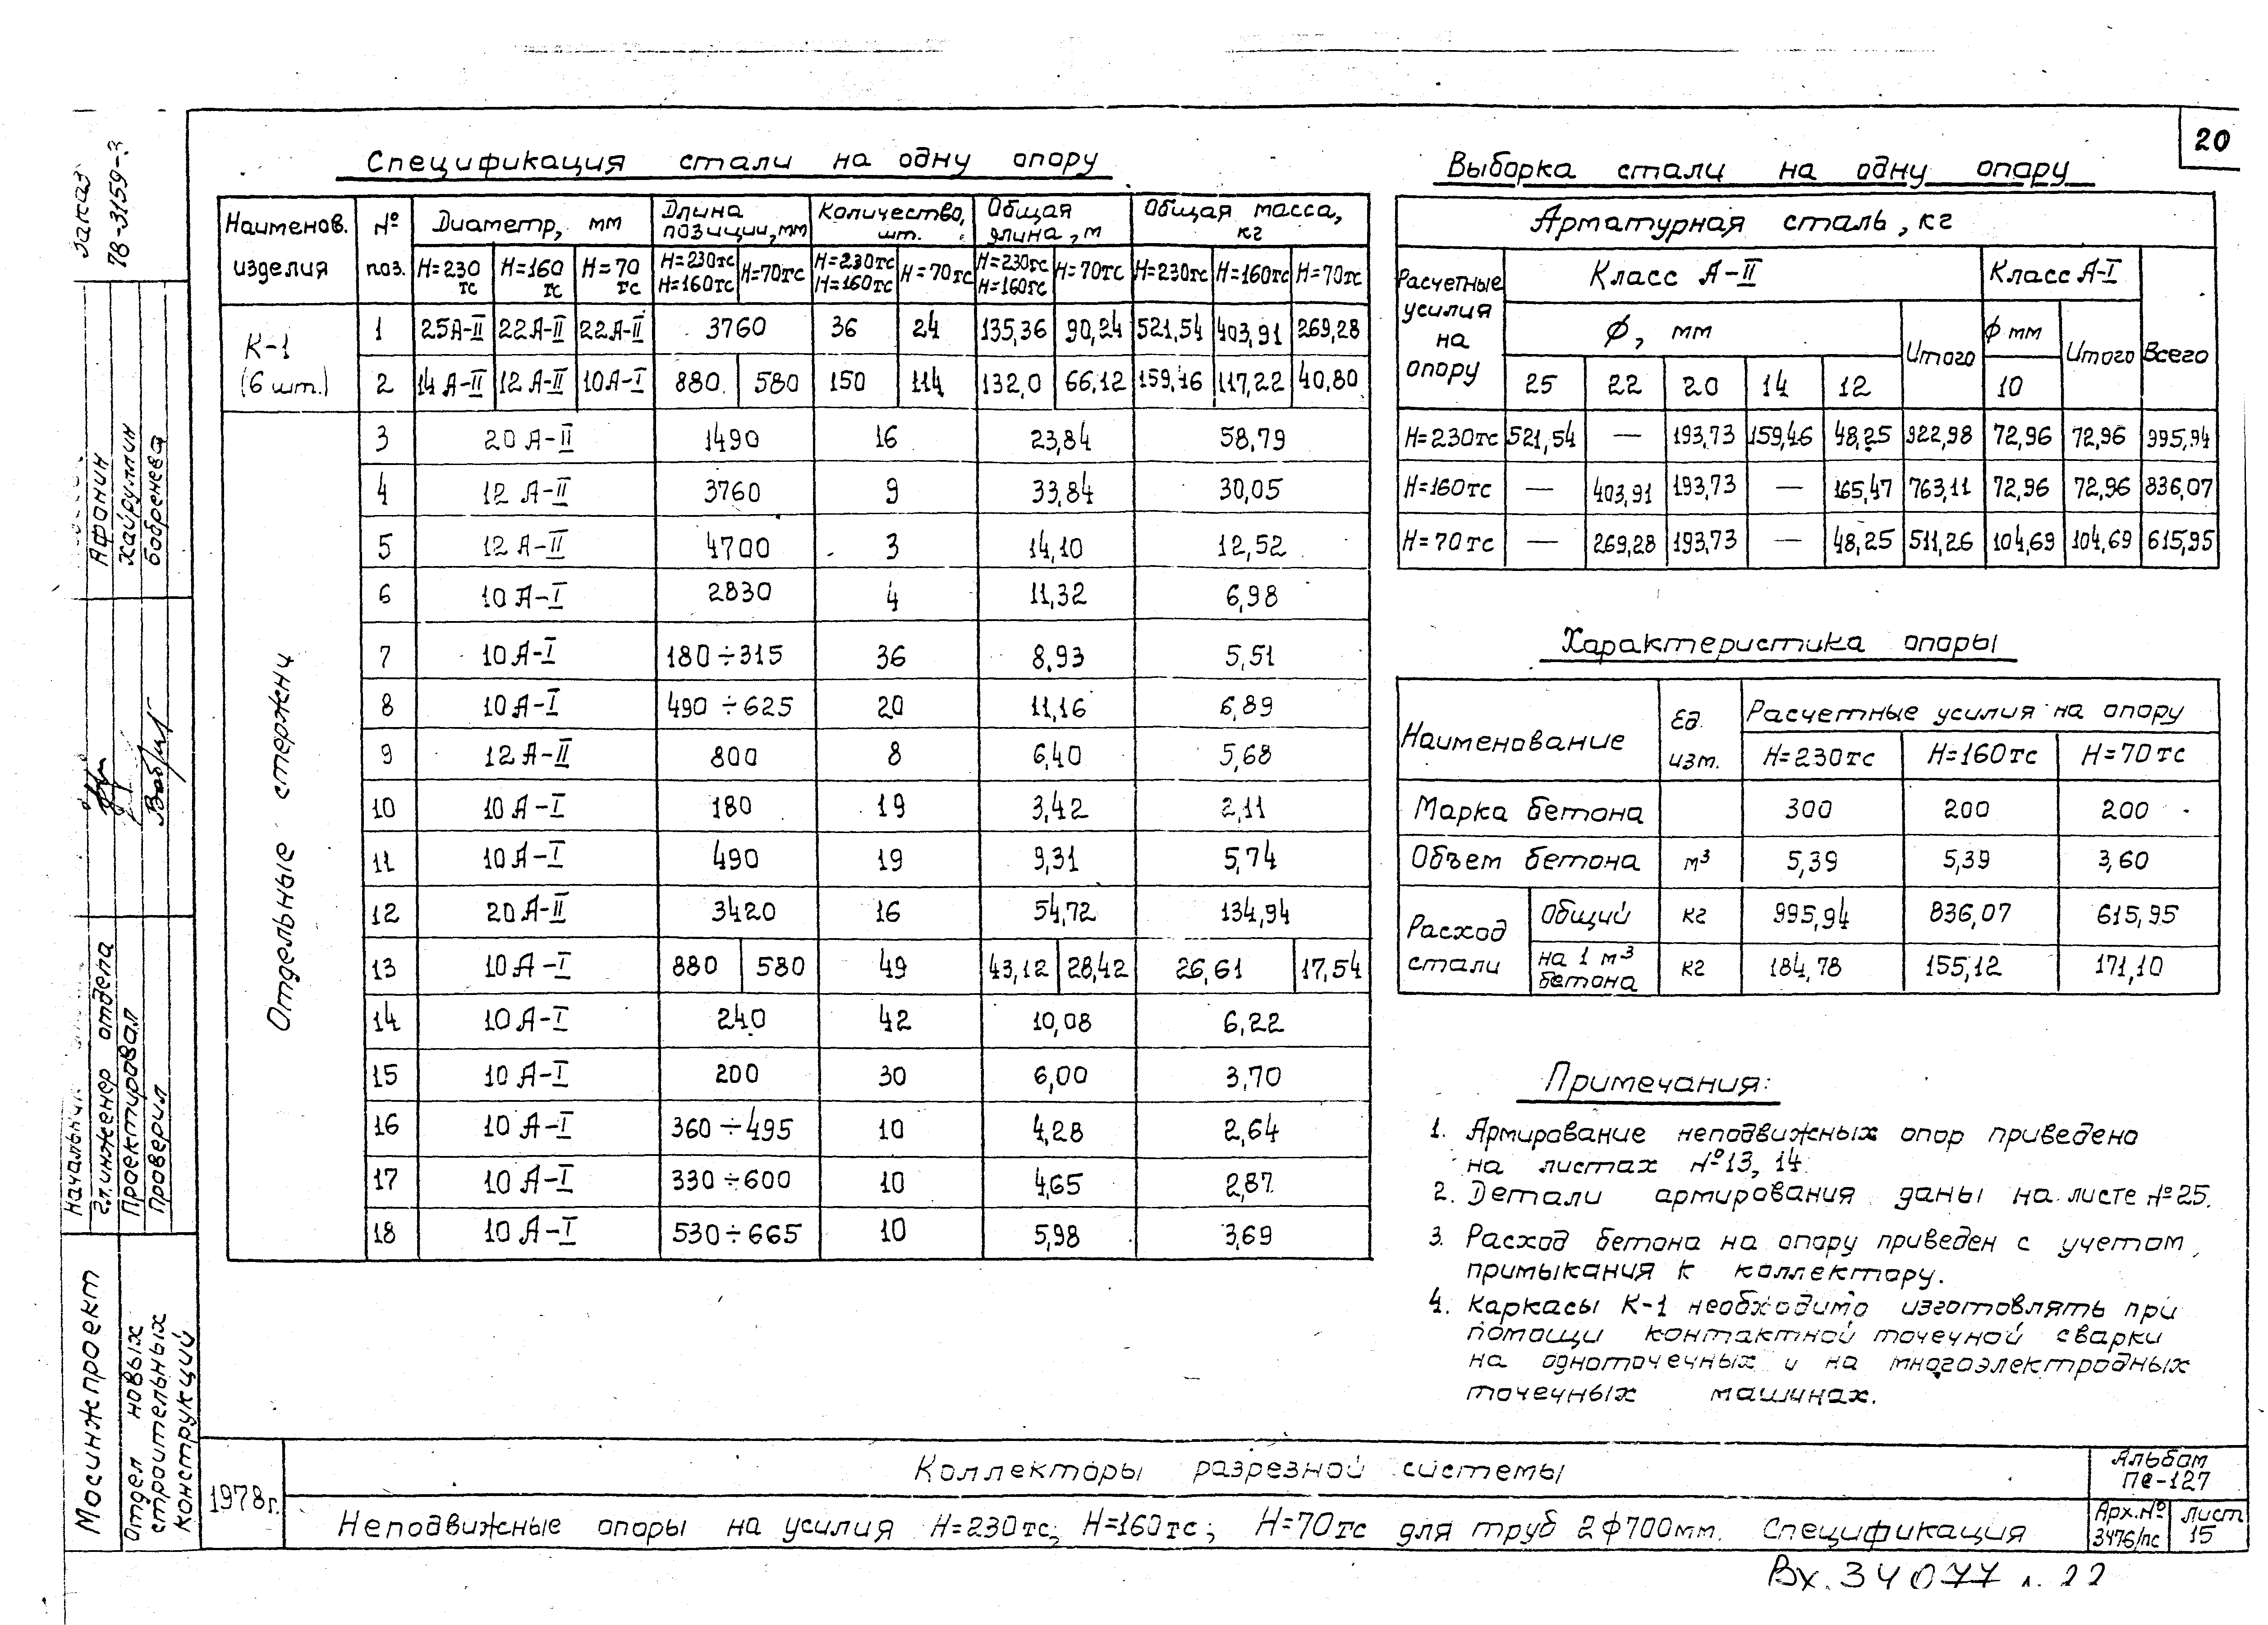 20
Заказ
78-3159-3
Спецификация стали на одну опору
Наименов. изделия | № поз. | Диаметр, мм | Длина позиции, мм | Количество, шт. | Общая длина, м | Общая масса, кг
H=230 тс | H=160 тс | H=70 тс | H=230тс H=160тс | H=70тс | H=230тс H=160тс | H=70тс | H=230тс H=160тс | H=70тс | H=230тс | H=160тс | H=70тс
К-1 (6 шт.)
1 | 25А-II | 22А-II | 22А-II | 3760 | 36 | 24 | 135,36 | 90,24 | 521,54 | 403,91 | 269,28
2 | 14А-II | 12А-II | 10А-I | 880 | 580 | 150 | 114 | 132,0 | 66,12 | 159,46 | 117,22 | 40,80
Отдельные стержни
3 | 20А-II | 1490 | 16 | 23,84 | 58,79
4 | 12А-II | 3760 | 9 | 33,84 | 30,05
5 | 12А-II | 4700 | 3 | 14,10 | 12,52
6 | 10А-I | 2830 | 4 | 11,32 | 6,98
7 | 10А-I | 180÷315 | 36 | 8,93 | 5,51
8 | 10А-I | 490÷625 | 20 | 11,16 | 6,89
9 | 12А-II | 800 | 8 | 6,40 | 5,68
10 | 10А-I | 180 | 19 | 3,42 | 2,11
11 | 10А-I | 490 | 19 | 9,31 | 5,74
12 | 20А-II | 3420 | 16 | 54,72 | 134,94
13 | 10А-I | 880 | 580 | 49 | 43,12 | 28,42 | 26,61 | 17,54
14 | 10А-I | 240 | 42 | 10,08 | 6,22
15 | 10А-I | 200 | 30 | 6,00 | 3,70
16 | 10А-I | 360÷495 | 10 | 4,28 | 2,64
17 | 10А-I | 330÷600 | 10 | 4,65 | 2,87
18 | 10А-I | 530÷665 | 10 | 5,98 | 3,69
Выборка стали на одну опору
Арматурная сталь, кг
Расчетные усилия на опору | Класс А-II | Класс А-I | Всего
Ф, мм | Итого | Ф мм | Итого
25 | 22 | 20 | 14 | 12 | 10
H=230тс | 521,54 | — | 193,73 | 159,46 | 48,25 | 922,98 | 72,96 | 72,96 | 995,94
H=160тс | — | 403,91 | 193,73 | — | 165,47 | 763,11 | 72,96 | 72,96 | 836,07
H=70тс | — | 269,28 | 193,73 | — | 48,25 | 511,26 | 104,69 | 104,69 | 615,95
Характеристика опоры
Наименование | Ед. изм. | Расчетные усилия на опору
H=230тс | H=160тс | H=70тс
Марка бетона | 300 | 200 | 200
Объем бетона | м³ | 5,39 | 5,39 | 3,60
Расход стали | Общий | кг | 995,94 | 836,07 | 615,95
на 1 м³ бетона | кг | 184,78 | 155,12 | 171,10
Примечания:
1. Армирование неподвижных опор приведено
на листах №13, 14.
2. Детали армирования даны на листе №25.
3. Расход бетона на опору приведен с учетом
примыкания к коллектору.
4. Каркасы К-1 необходимо изготовлять при
помощи контактной точечной сварки
на одноточечных и на многоэлектродных
точечных машинах.
Афонин
Хайруллин
Бобренева
Начальник
Гл. инженер отдела
Проектировал
Проверил
Мосинжпроект
Отдел новых
строительных
конструкций
1978г.
Коллекторы разрезной системы
Неподвижные опоры на усилия H=230тс; H=160тс; H=70тс для труб 2ф700мм. Спецификация
Альбом
ПС-127
Арх.№
3476/пс
Лист
15
Вх. 34077 л. 22